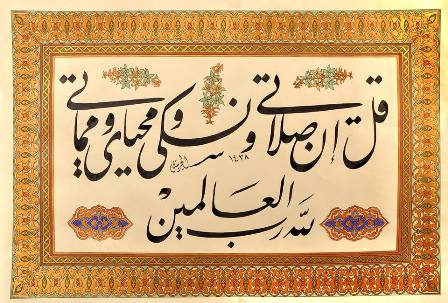 قل إن صلاتي ونسكي ومحياي ومماتي
١٤٣٨
لله رب العالمين